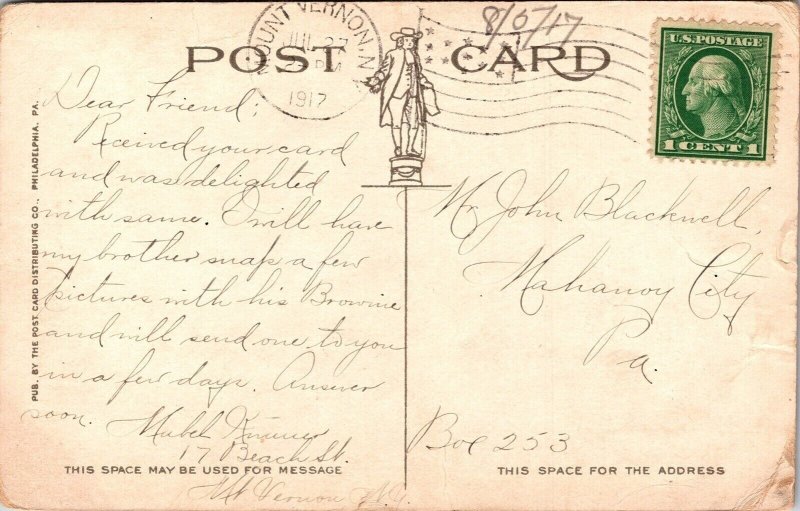 POST CARD
MOUNT VERNON, N.Y.
JUL 27
PM
1917
8/5/17
U.S. POSTAGE
1 CENT 1
PUB. BY THE POST CARD DISTRIBUTING CO., PHILADELPHIA, PA.
Dear Friend;
Received your card
and was delighted
with same. I will have
my brother snap a few
pictures with his Brownie
and will send one to you
in a few days. Answer
soon.
Mabel
17 Beach St.
Mt Vernon N.Y.
Mr. John Blackwell,
Mahanoy City
Pa.
Box 253
THIS SPACE MAY BE USED FOR MESSAGE
THIS SPACE FOR THE ADDRESS